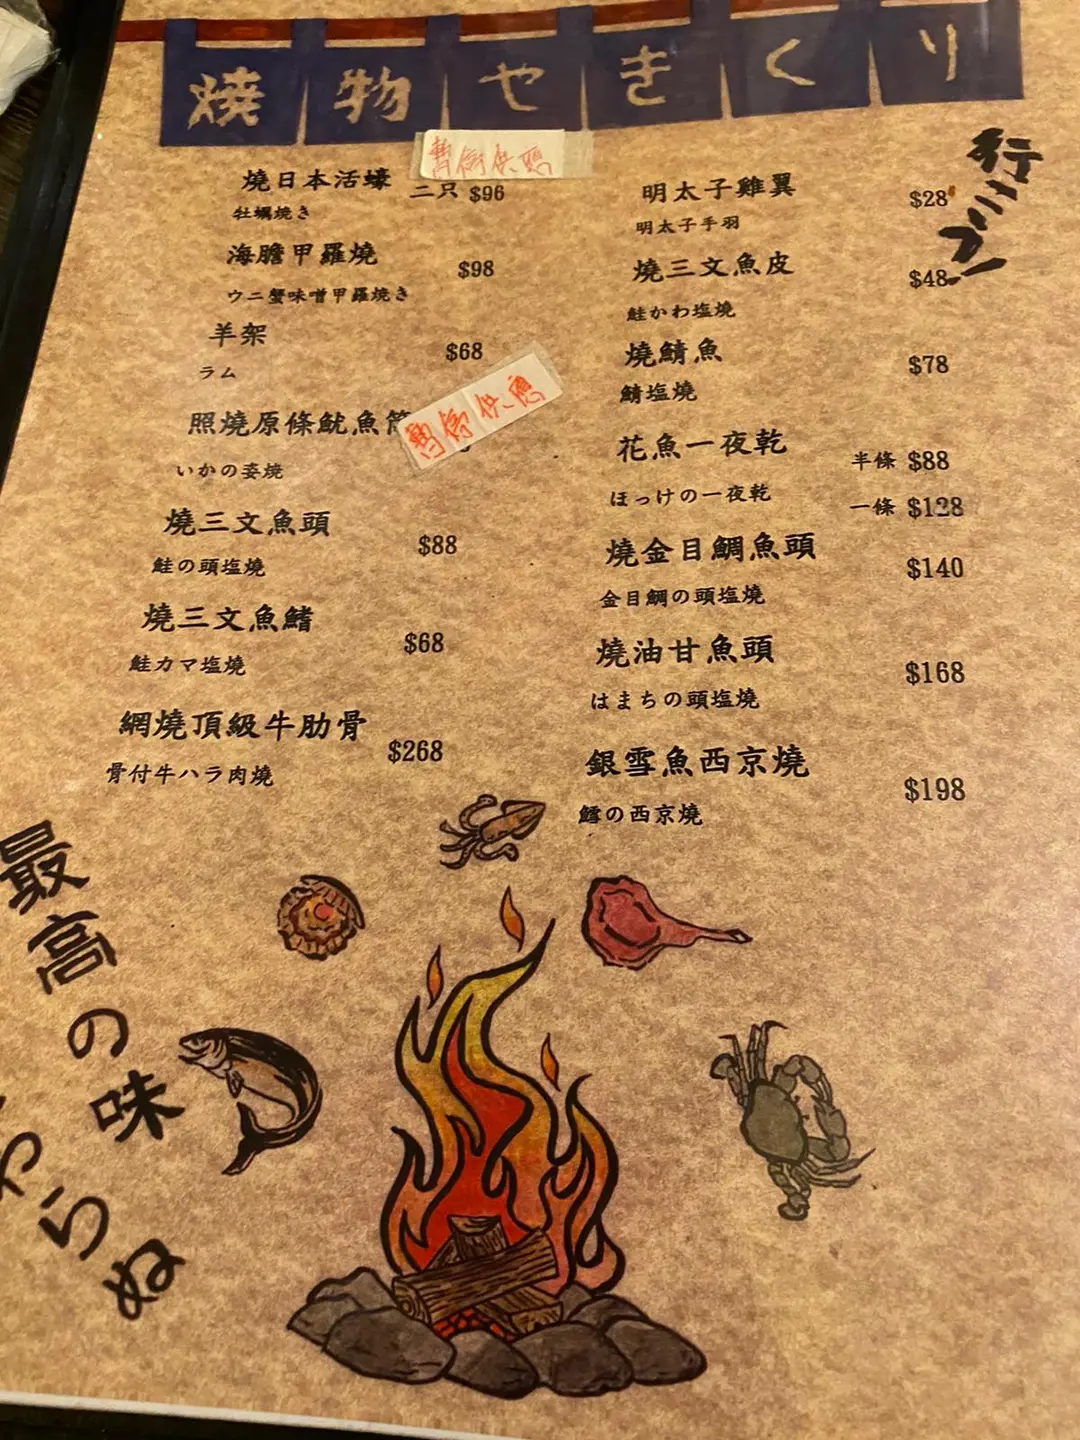 燒物やきくり
暫停供應
燒日本活蠔 二只 $96
牡蠣焼き
海膽甲羅燒 $98
ウニ蟹味噌甲羅焼き
羊架 $68
ラム
照燒原條魷魚筒
暫停供應
いかの姿燒
燒三文魚頭 $88
鮭の頭塩燒
燒三文魚鰭 $68
鮭カマ塩燒
網燒頂級牛肋骨 $268
骨付牛ハラ肉燒
明太子雞翼 $28
明太子手羽
燒三文魚皮 $48
鮭かわ塩燒
燒鯖魚 $78
鯖塩燒
花魚一夜乾 半條 $88
ほっけの一夜乾 一條 $128
燒金目鯛魚頭 $140
金目鯛の頭塩燒
燒油甘魚頭 $168
はまちの頭塩燒
銀雪魚西京燒 $198
鱈の西京燒
最高の味
わらぬ